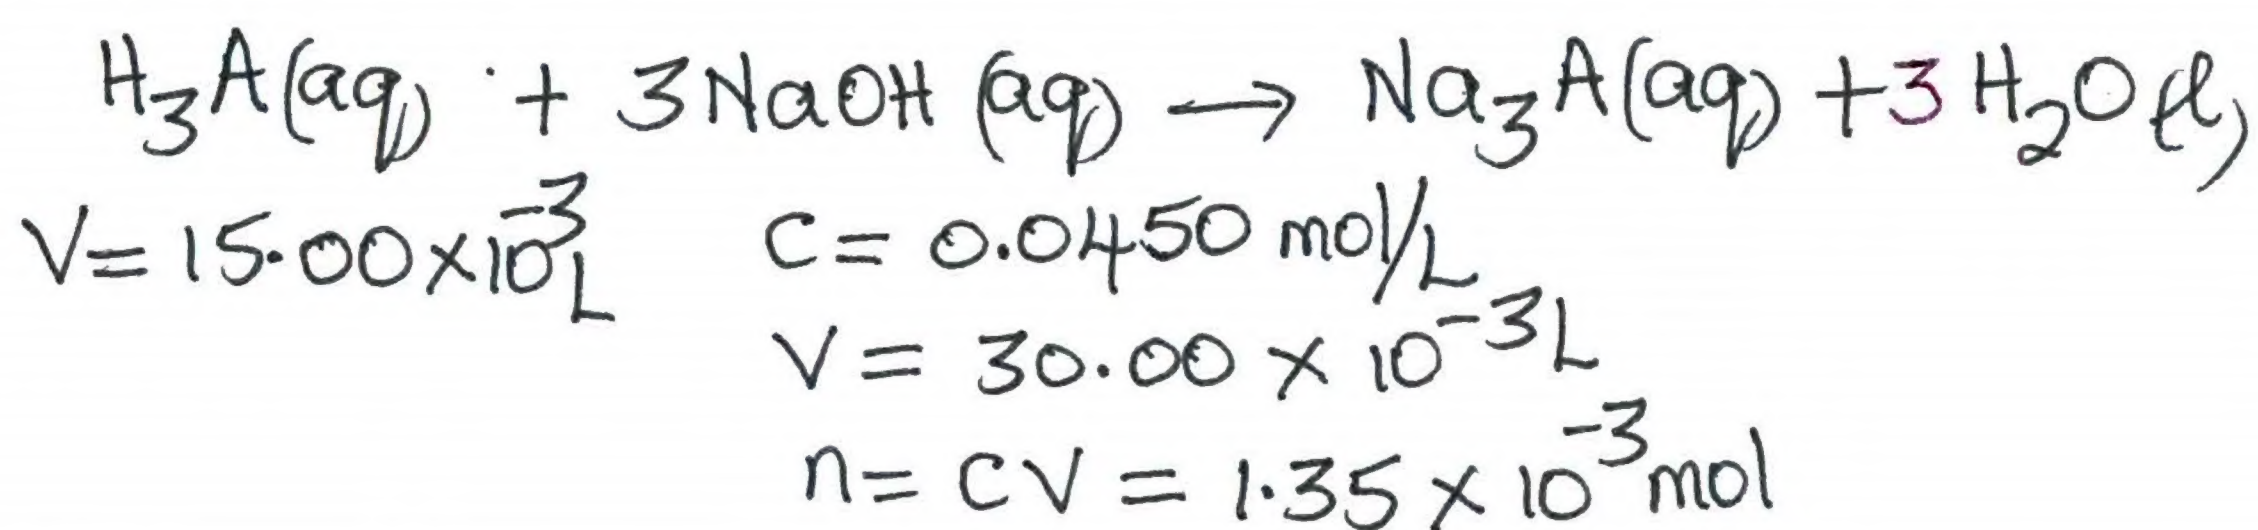 H₃A(aq) + 3NaOH(aq) → Na₃A(aq) + 3H₂O(l)
V = 15.00 × 10⁻³ L C = 0.0450 mol/L
V = 30.00 × 10⁻³ L
n = CV = 1.35 × 10⁻³ mol